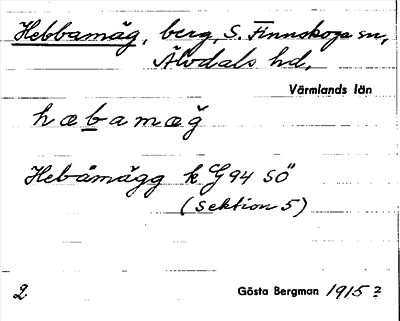 Hebbamäg, berg, S. Finnskoga sn,
Älvdals hd,
Värmlands län
hæbamæğ
Hebåmägg k G94 SÖ
(sektion 5)
2 Gösta Bergman 1915?